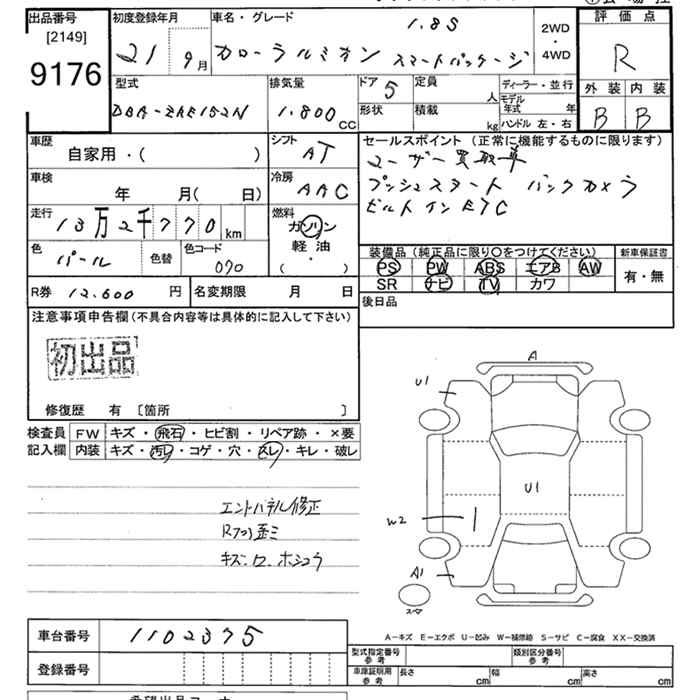 出品番号 [2149] 9176
初度登録年月 21 9月
車名・グレード 1.8S
カローラルミオン スマートパッケージ
2WD・4WD
評価点 R
外装 B 内装 B
型式 DBA-ZRE152N
排気量 1.800 CC
ドア 5
形状
定員 人
積載 kg
ディーラー・並行
モデル年式 年
ハンドル 左・右
車歴 自家用・( )
シフト AT
車検 年 月( 日)
冷房 AAC
走行 13万2千770 km
燃料 ガソリン 軽油 ( ・ )
色 パール 色替
色コード 070
R券 12.600 円
名変期限 月 日
セールスポイント (正常に機能するものに限ります)
ユーザー買取車
プッシュスタート バックカメラ
ビルトインETC
装備品 (純正品に限り○をつけてください)
PS PW ABS エアB AW
SR ナビ TV カワ
新車保証書 有・無
後日品
注意事項申告欄 (不具合内容等は具体的に記入して下さい)
初出品
修復歴 有 〔箇所 〕
検査員記入欄
FW キズ・飛石・ヒビ割・リペア跡・×要
内装 キズ・汚レ・コゲ・穴・スレ・キレ・破レ
エンドパネル修正
キズ・ロ ホシュウ
A
U1
U1
W2
A1
スペア
A-キズ E-エクボ U-凹み W-補修跡 S-サビ C-腐食 XX-交換済
車台番号 1102375
登録番号
型式指定番号 参考
類別区分番号 参考
車庫証明用 参考 長さ cm 幅 cm 高さ cm